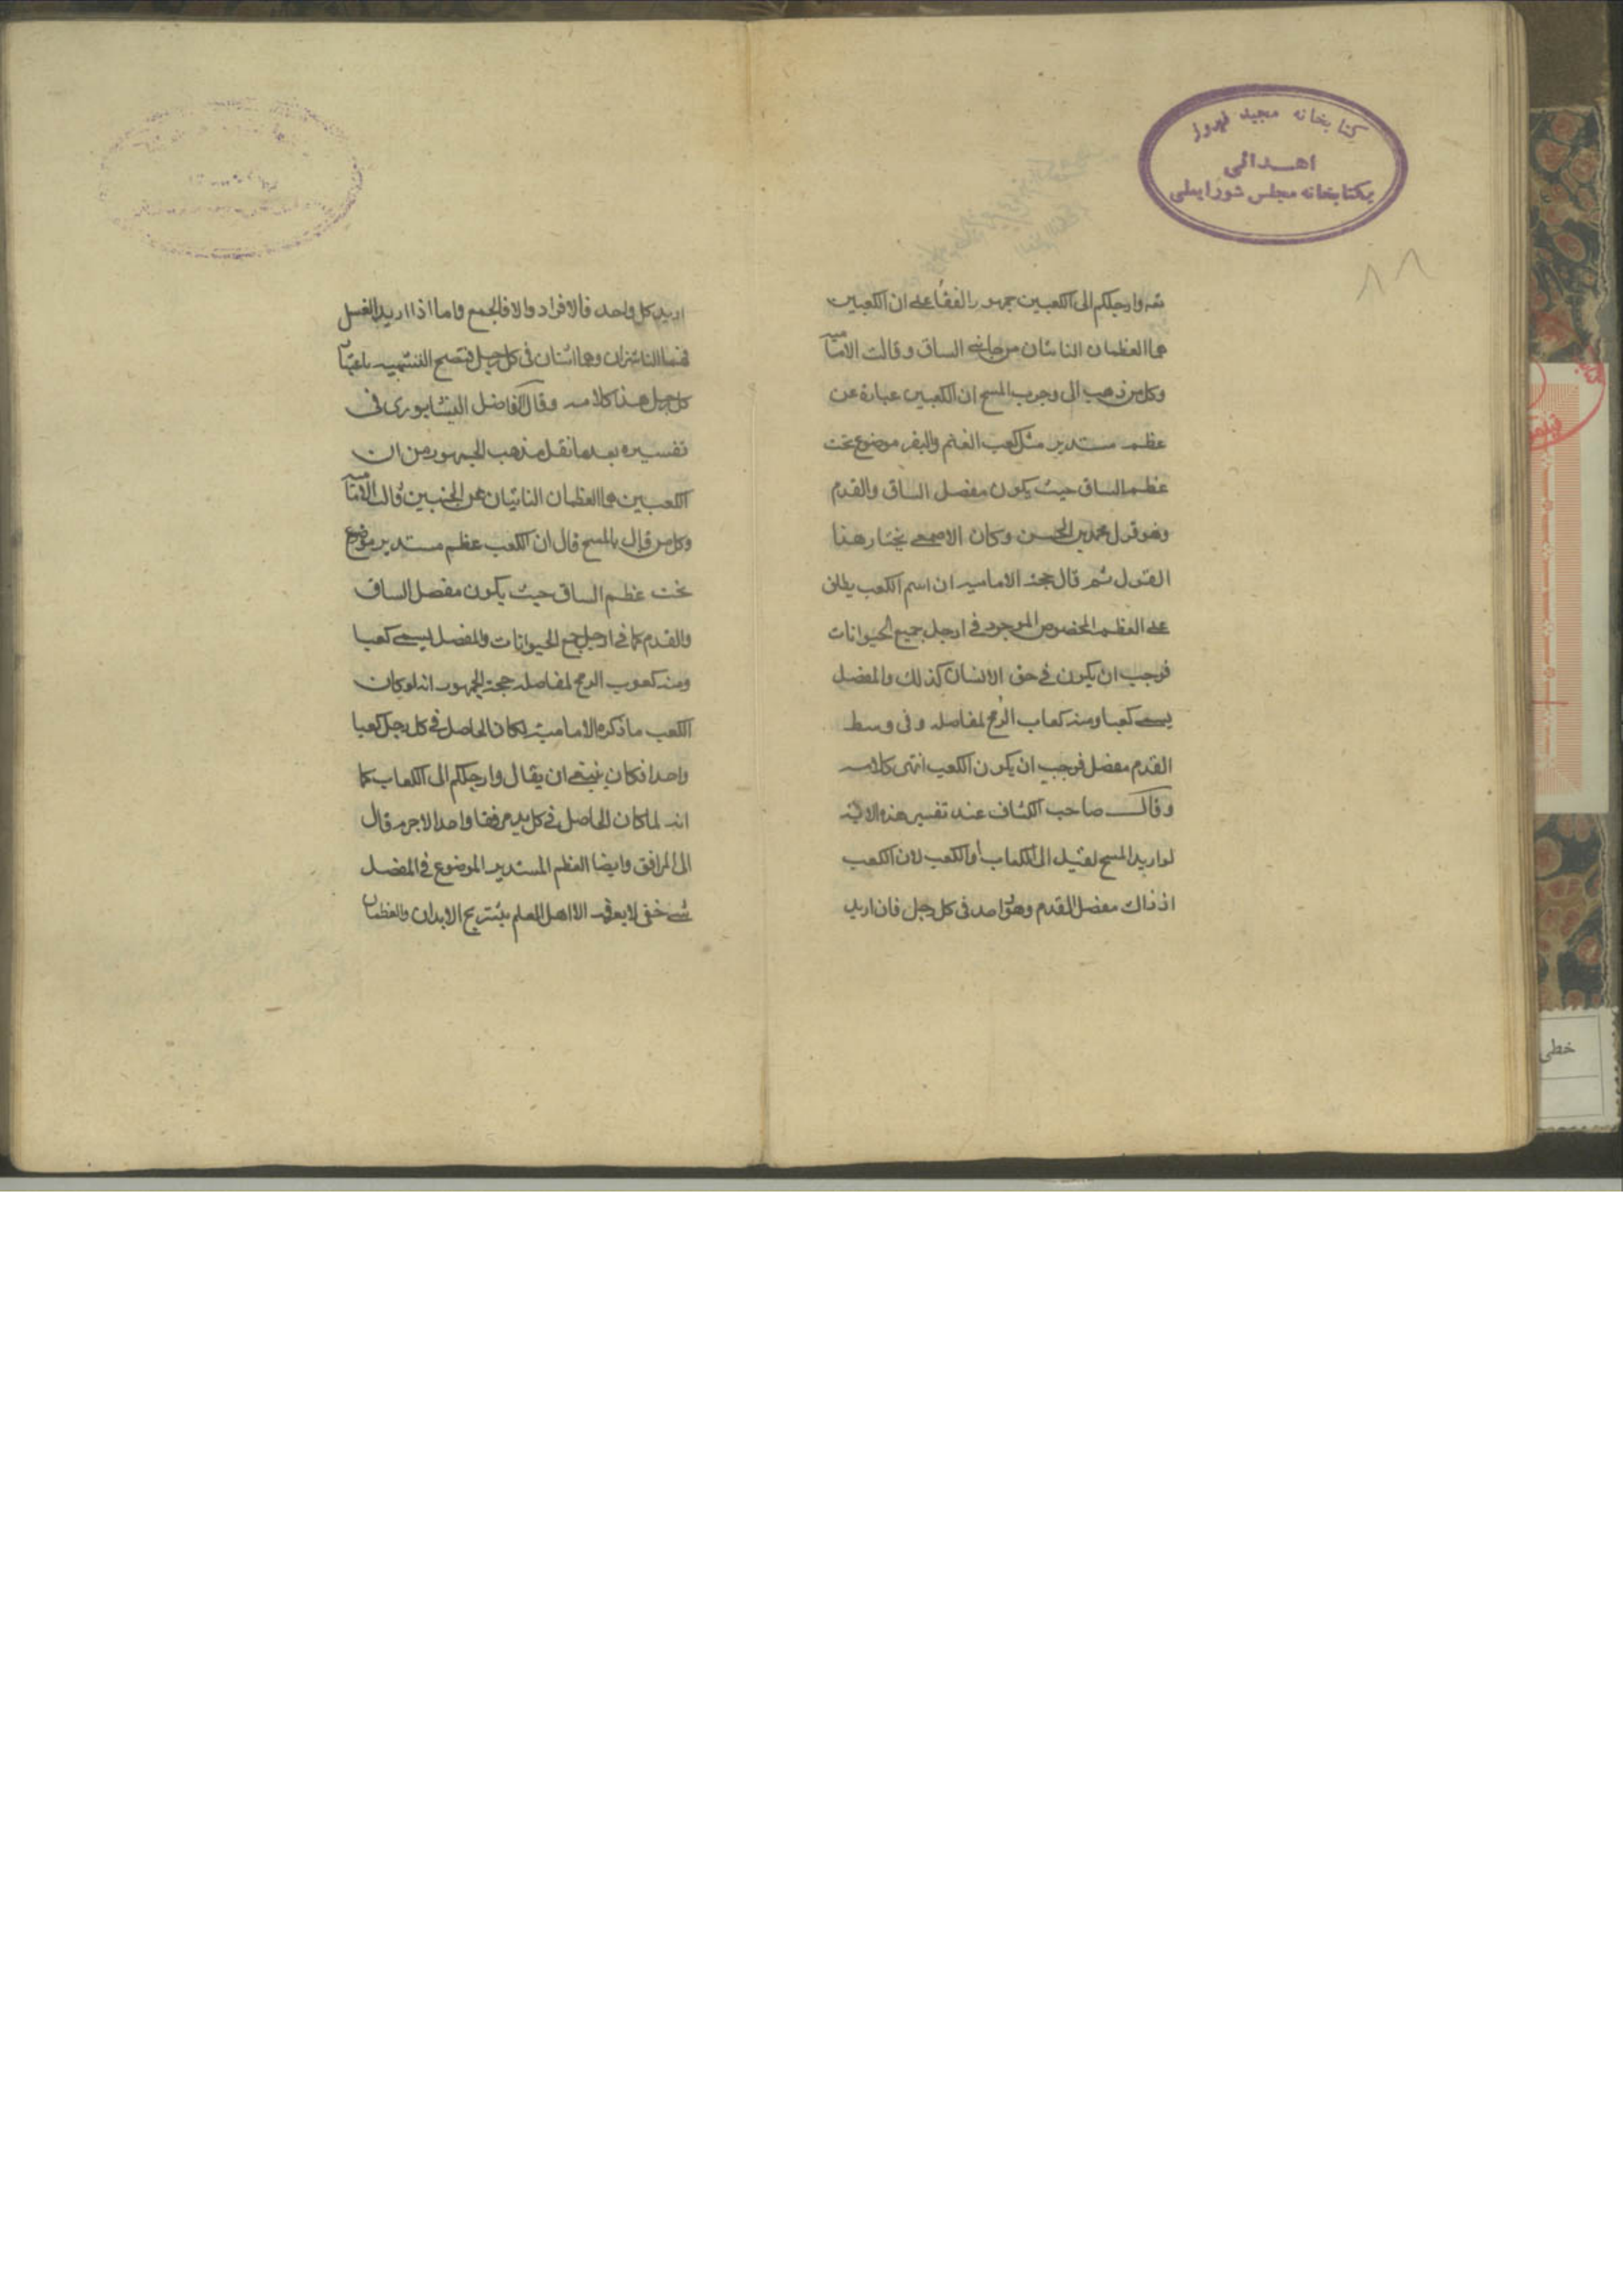 كتابخانه مجيد فيروز
اهدائى
بكتابخانه مجلس شوراىملى
٨٨
وارجلكم الى الكعبين جمهور الفقها على ان الكعبين
هما العظمان الناتئان من جانبى الساق وقالت الاماميه
وكل من ذهب الى وجوب المسح ان الكعبين عبارة عن
عظم مستدير مثل كعب الغنم والبقر موضوع تحت
عظم الساق حيث يكون مفصل الساق والقدم
وهو قول محمد بن الحسن وكان الاصمعى يختار هذا
القول ثم قال حجة الاماميه ان اسم الكعب يطلق
على العظم المخصوص الموجود فى ارجل جميع الحيوانات
فوجب ان يكون فى حق الانسان كذلك والمفصل
يسمى كعبا ومنه كعاب الرمح لمفاصله وفى وسط
القدم مفصل فوجب ان يكون الكعب انتهى كلامه
وقال صاحب الكشاف عند تفسير هذه الاية
لو اريد المسح لقيل الى الكعاب أو الكعب لان الكعب
اذ ذاك مفصل القدم وهو واحد فى كل رجل فان اريد
اريد كل واحد فالافراد والا فالجمع واما اذا اريد الغسل
فهما الناشزان وهما اثنان فى كل رجل فتصح التثنيه باعتبار
كل رجل هذا كلامه وقال الفاضل النيشابورى فى
تفسيره بعد ما نقل مذهب الجمهور من ان
الكعبين هما العظمان الناتيان عن الجنبين قالت الاماميه
وكل من قال بالمسح قال ان الكعب عظم مستدير موضوع
تحت عظم الساق حيث يكون مفصل الساق
والقدم كما فى ارجل جميع الحيوانات والمفصل يسمى كعبا
ومنه كعوب الرمح لمفاصله حجة الجمهور انه لو كان
الكعب ما ذكره الاماميه لكان الحاصل فى كل رجل كعبا
واحدا فكان ينبغى ان يقال وارجلكم الى الكعاب كما
انه لما كان الحاصل فى كل يد مرفقا واحدا لاجرم قال
الى المرافق وايضا العظم المستدير الموضوع فى المفصل
شى خفى لا يعرفه الا اهل العلم بتشريح الابدان والعظمان
خطى